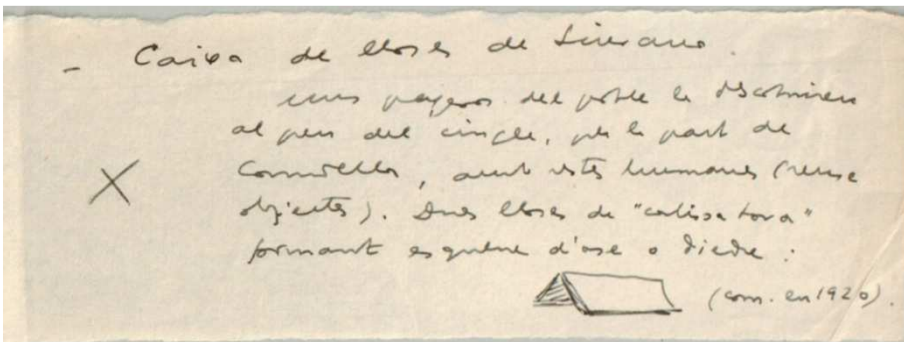 - Caixa de lloses de Siurana.
uns pagesos del poble la descobriren
al peu del cingle, per la part de
Cornudella, amb restes humanes (sense
objectes). Dues lloses de "calissa tova"
formant esquena d'ase o diedre :
(com. en 1920).